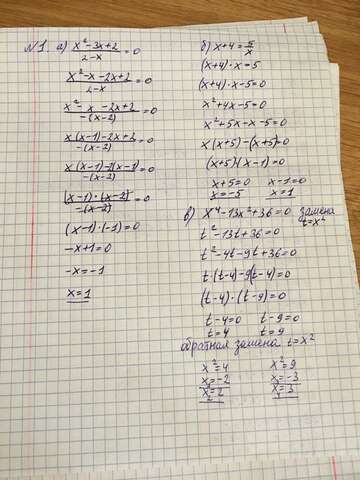 №1 а) (x²-3x+2)/(2-x) = 0
(x²-x-2x+2)/(2-x) = 0
(x²-x-2x+2)/(-(x-2)) = 0
(x(x-1)-2x+2)/(-(x-2)) = 0
(x(x-1)-2(x-1))/(-(x-2)) = 0
((x-1)·(x-2))/(-(x-2)) = 0
(x-1)·(-1)=0
-x+1=0
-x=-1
x=1
б) x+4=5/x
(x+4)·x=5
(x+4)·x-5=0
x²+4x-5=0
x²+5x-x-5=0
x(x+5)-(x+5)=0
(x+5)(x-1)=0
x+5=0 x-1=0
x=-5 x=1
в) x⁴-13x²+36=0 замена
t=x²
t²-13t+36=0
t²-4t-9t+36=0
t(t-4)-9(t-4)=0
(t-4)·(t-9)=0
t-4=0 t-9=0
t=4 t=9
обратная замена t=x²
x²=4 x²=9
x=-2 x=-3
x=2 x=3